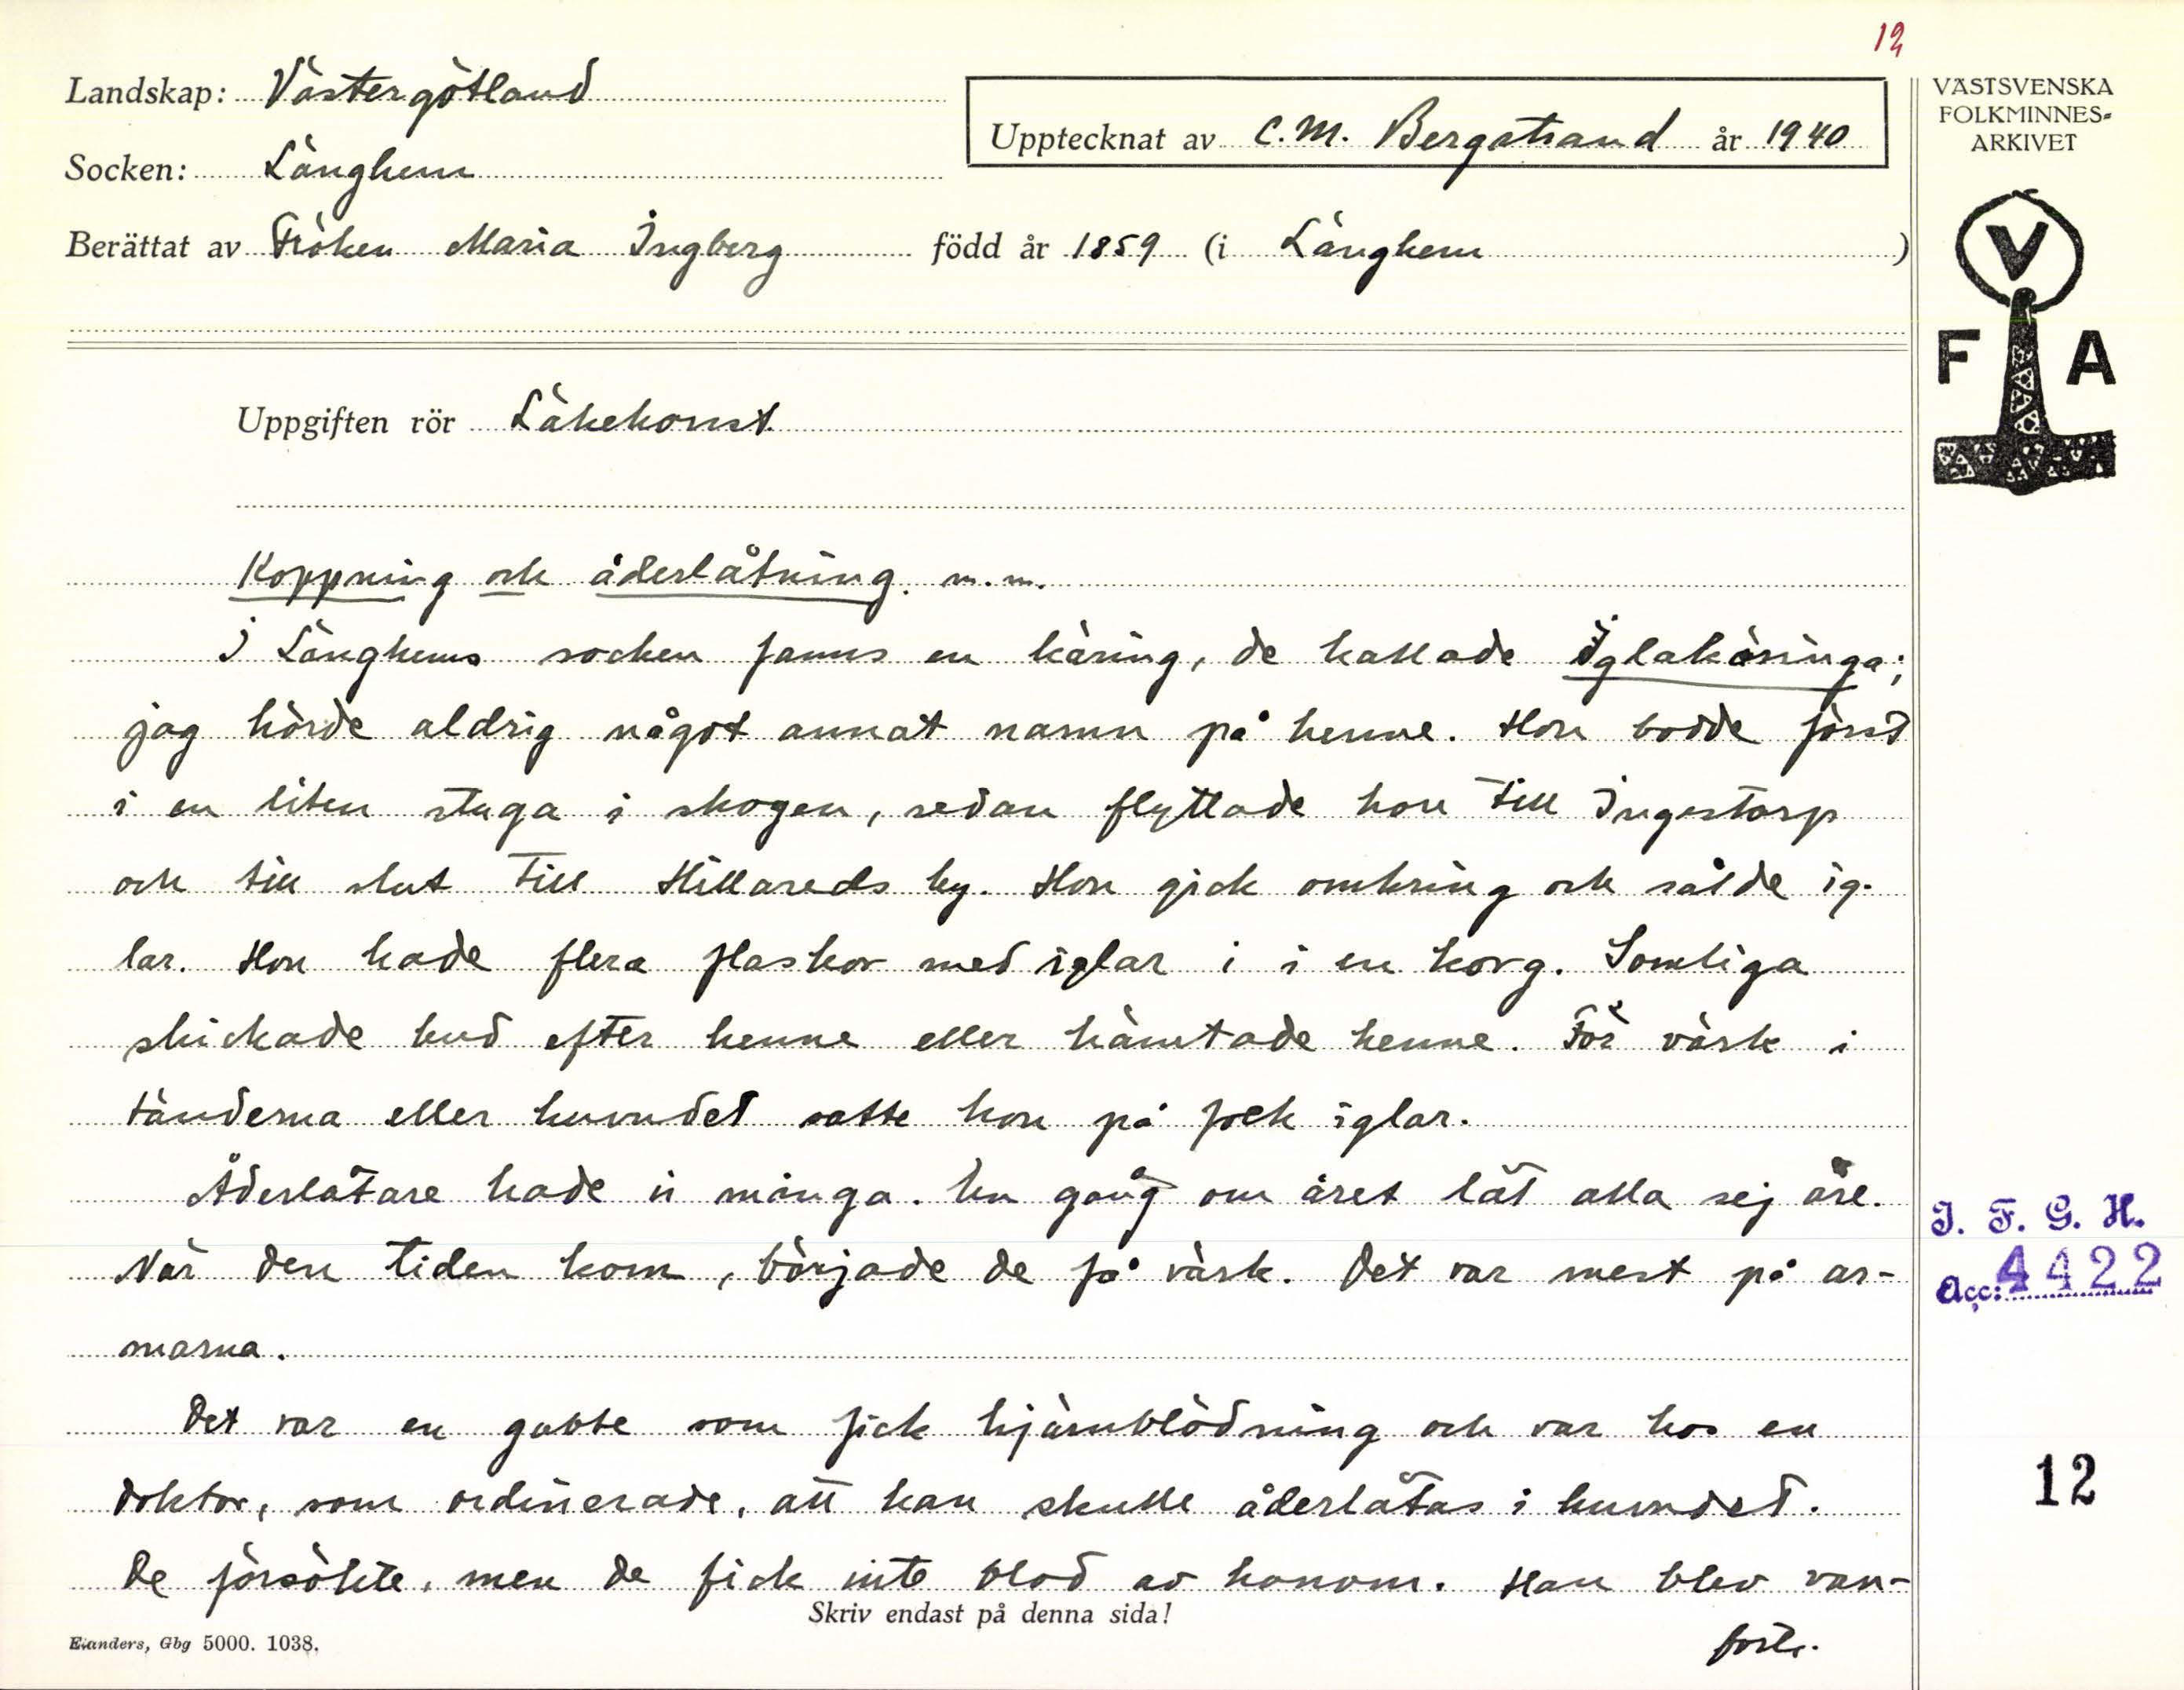 12
Landskap: Västergötland
Upptecknat av C.M. Bergstrand år 1940
Socken: Länghem
Berättat av Fröken Maria Ingberg född år 1859 (i Länghem)
VÄSTSVENSKA
FOLKMINNES-
ARKIVET
V
F A
Uppgiften rör Läkekonst.
Koppning och åderlåtning. m.m.
I Länghems socken fanns en käring, de kallade Iglakäringa;
jag hörde aldrig något annat namn på henne. Hon bodde först
i en liten stuga i skogen, sedan flyttade hon till Ingestorp
och till slut till Hillareds by. Hon gick omkring och sålde ig-
lar. Hon hade flera flaskor med iglar i i en korg. Somliga
skickade bud efter henne eller hämtade henne. För värk i
tänderna eller huvudet satte hon på folk iglar.
Åderlåtare hade vi många. En gång om året lät alla sej åre.
När den tiden kom, började de få värk. Det var mest på ar-
marna.
Det var en gubbe som fick hjärnblödning och var hos en
doktor, som ordinerade, att han skulle åderlåtas i huvudet.
De försökte, men de fick inte blod av honom. Han blev van-
forts.
Skriv endast på denna sida!
Elanders, Gbg 5000. 1038.
I. F. G. H.
Acc: 4422
12